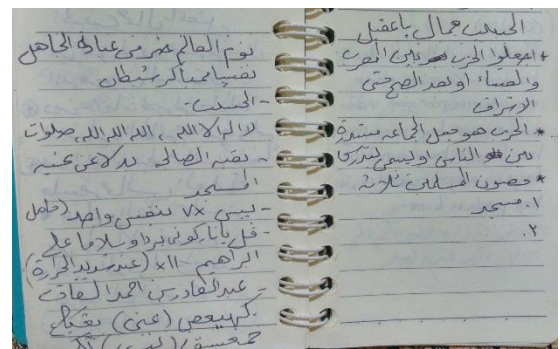 الحبيب جمال باعقيل
* اجعلوا الحزب بين المغرب
والعشاء او بعد الصبح حتى
الاشراق
* الحزب هو جعل الجماعة مستديرة
بين الناس او يسمى
* حصون المسلمين ثلاثة
١. مسجد
٢.
نوم العالم خير من عبادة الجاهل
- الحبيب
لا اله الا الله ، الله الله الله، صلوات
- بقية الصالح بدلا عن تحية
المسجد
- يس ٧x بنفس واحد
- قل يا نار كوني بردا وسلاما على
ابراهيم x١١ (عند شديد الحرارة)
- عبد القادر بن احمد السقاف
كهيعص
حمعسق